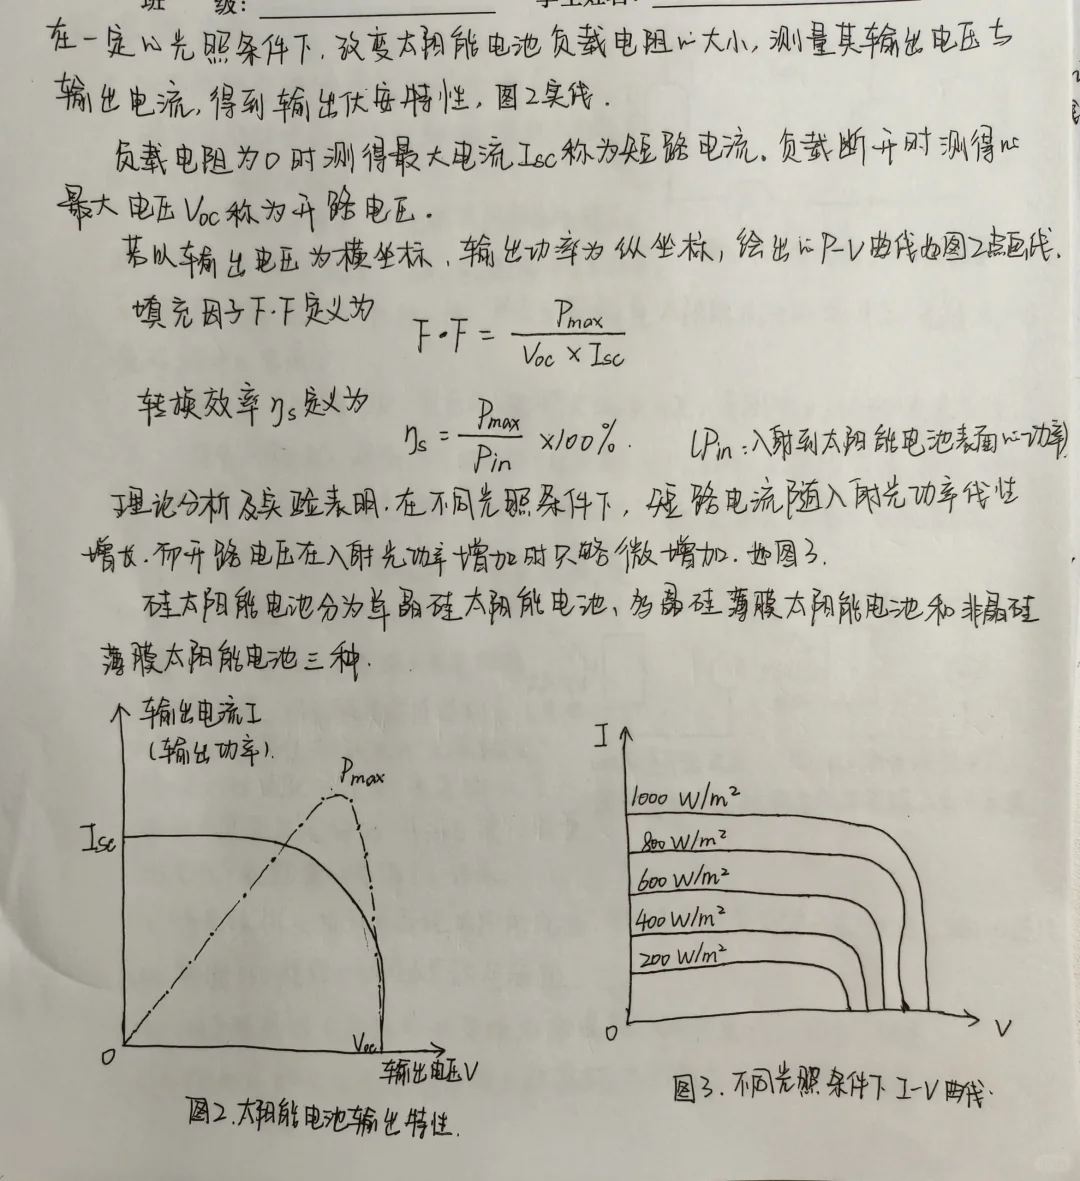 班 级:
在一定的光照条件下,改变太阳能电池负载电阻的大小,测量其输出电压与
输出电流,得到输出伏安特性,图2实线.
负载电阻为0时测得最大电流Isc称为短路电流。负载断开时测得的
最大电压Voc称为开路电压.
若以输出电压为横坐标,输出功率为纵坐标,绘出的P-V曲线如图2点画线.
填充因子F·F定义为
F·F = Pmax / (Voc × Isc)
转换效率ηs定义为
ηs = Pmax / Pin ×100%. (Pin:入射到太阳能电池表面的功率)
理论分析及实验表明.在不同光照条件下,短路电流随入射光功率线性
增长.而开路电压在入射光功率增加时只略微增加.如图3.
硅太阳能电池分为单晶硅太阳能电池、多晶硅薄膜太阳能电池和非晶硅
薄膜太阳能电池三种.
输出电流I
(输出功率).
Pmax
Isc
0
Voc
输出电压V
图2.太阳能电池输出特性.
I
1000 W/m²
800 W/m²
600 W/m²
400 W/m²
200 W/m²
0
V
图3.不同光照条件下I-V曲线.